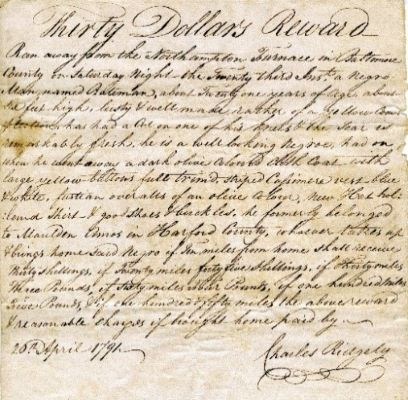 Thirty Dollars Reward
Ran away from the Northampton Furnace in Baltimore
County on Saturday Night the Twenty third Inst. a Negro
Man, named Bateman, about Twenty one years of Age about
feet high, lusty & well made rather of a Yellow Com
plection, has had a Cut on one of his & the Scar is
remarkably fresh, he is a well looking Negroe, had on
when he went away a dark olive Colored Cloth Coat with
large yellow buttons full trim'd, striped Casimere vest blue
& white, fustian overalls of an olive Colour, New Hat
Shirt & good Shoes & buckles, he formerly belonged
to Maulden Amos in Harford County, whoever takes up
& brings home said Negro if Ten miles from home shall receive
Thirty Shillings, if Twenty miles forty five Shillings, if Thirty miles
Three Pounds, if Sixty miles Four Pounds, if one hundred miles
Five Pounds, & if one hundred & fifty miles the above reward
& reasonable Charges if brought home paid by
26th April 1791
Charles Ridgely